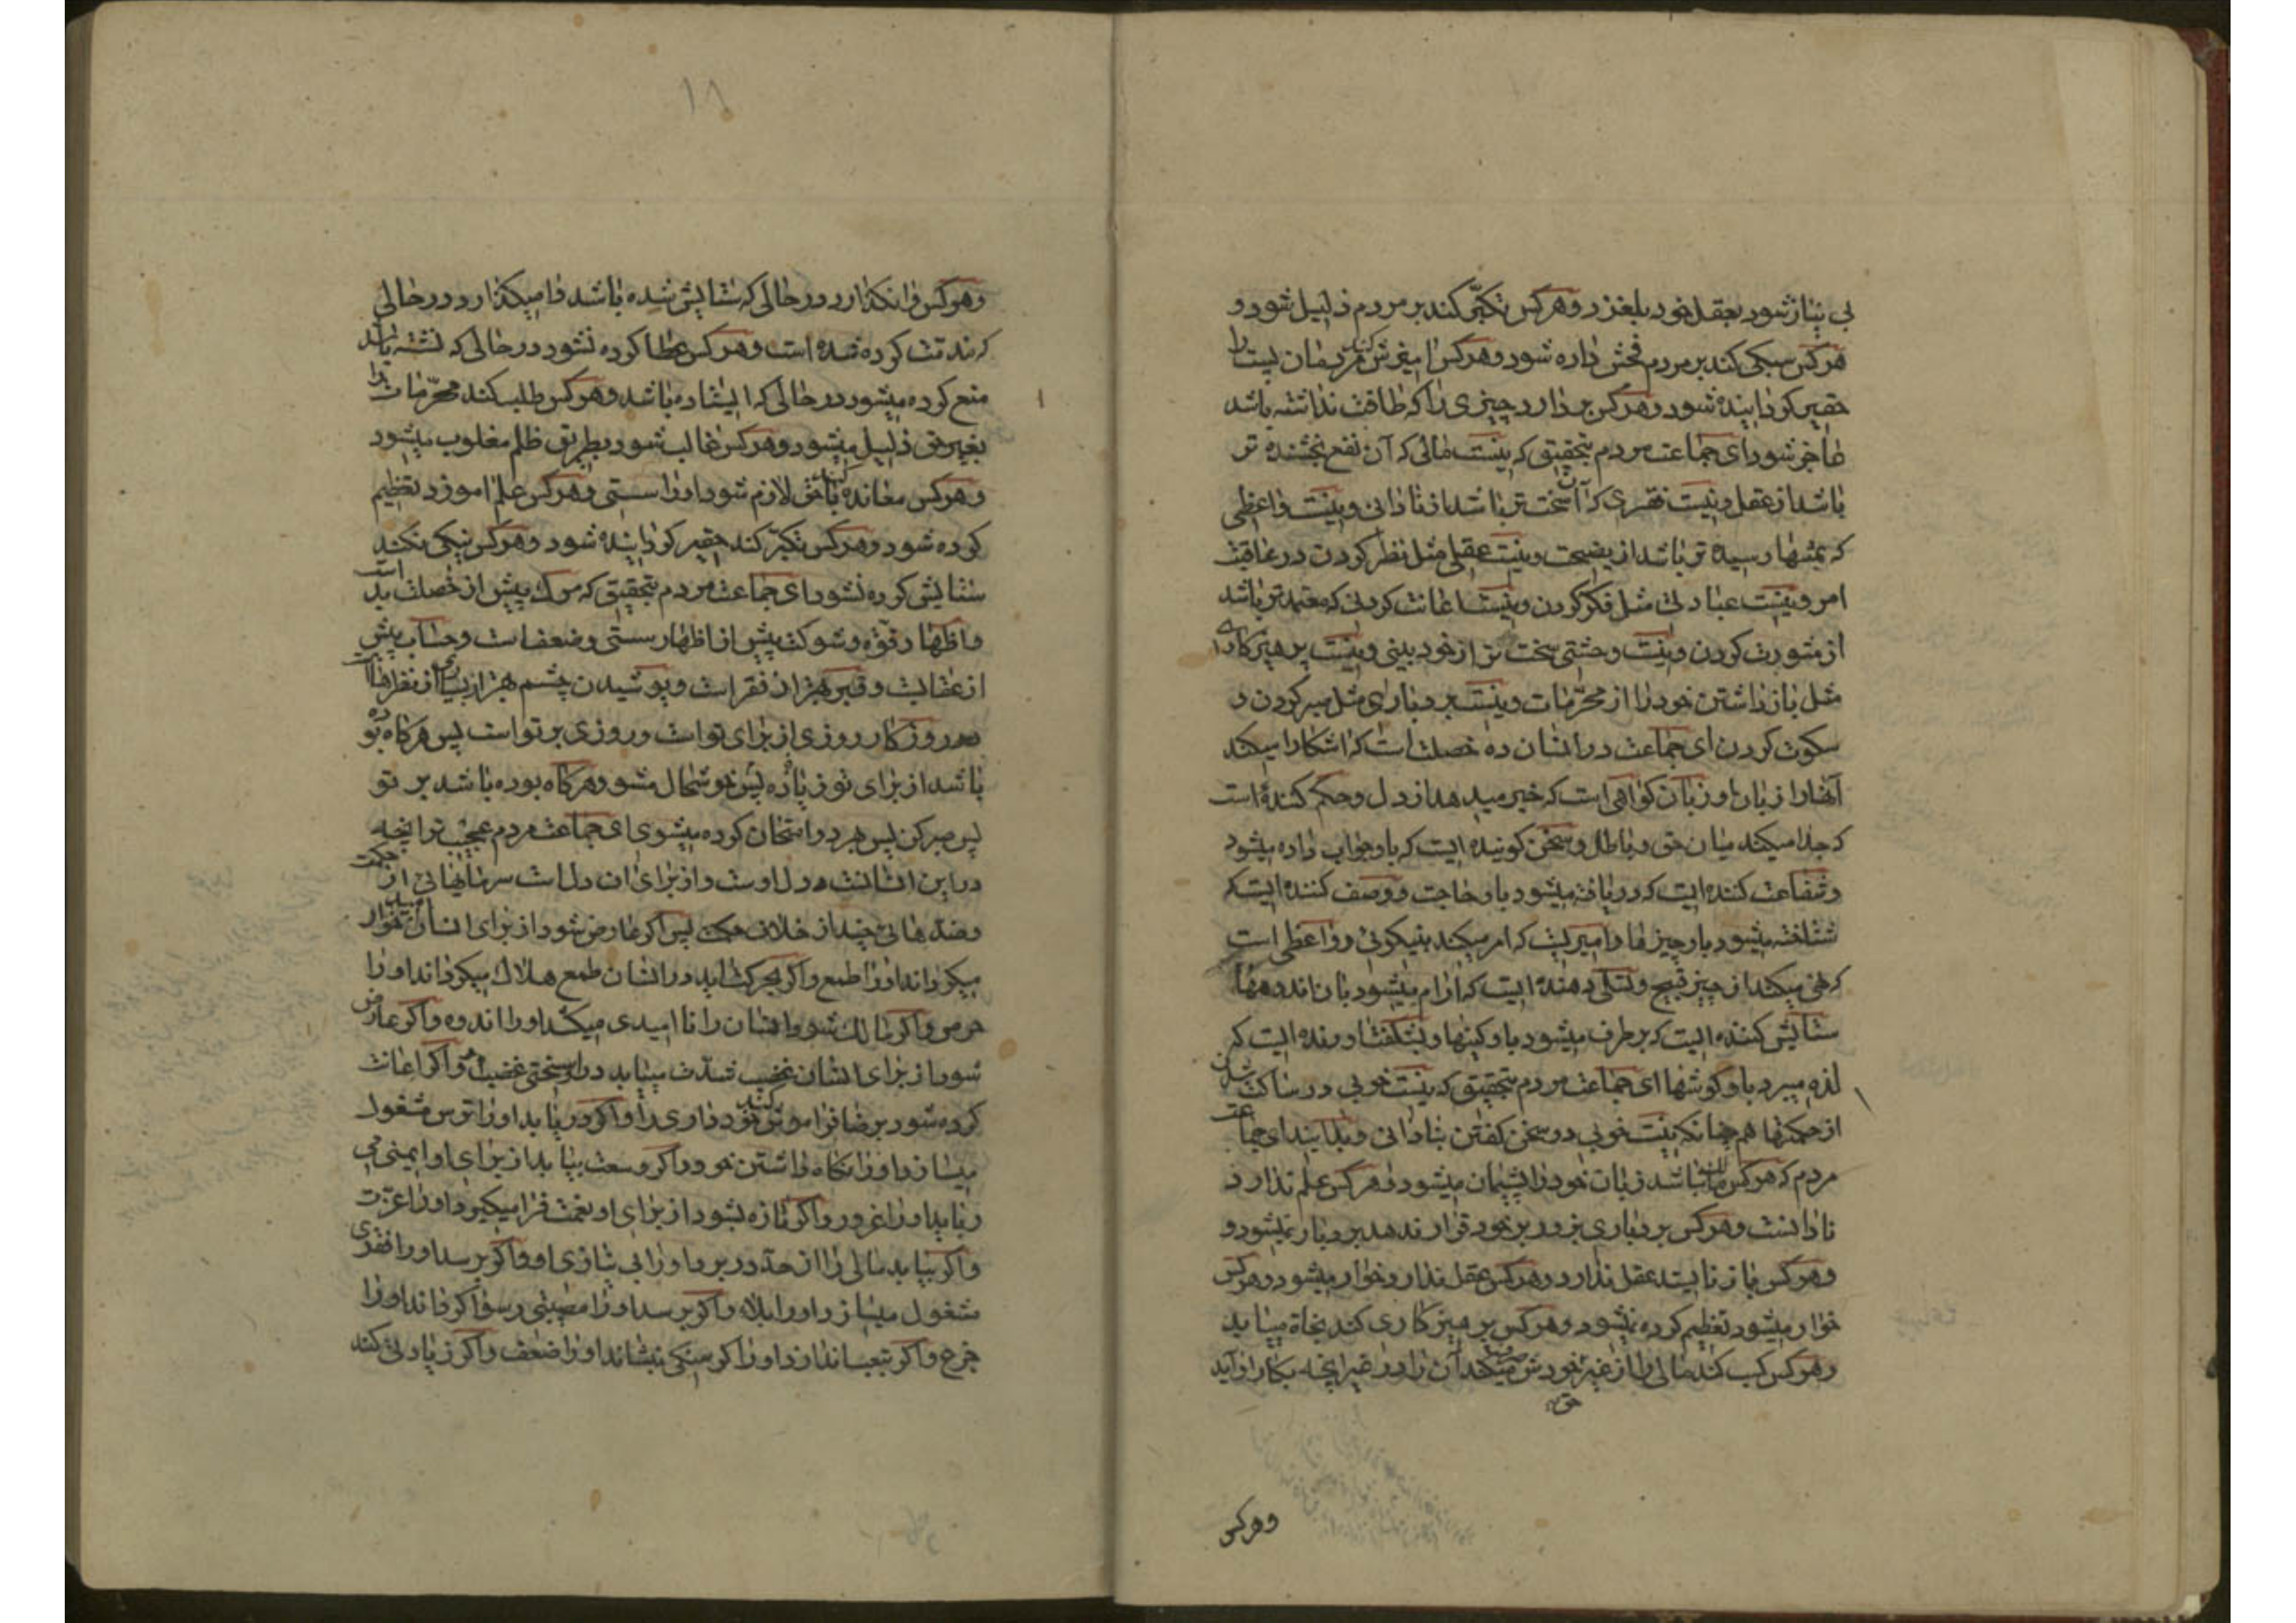 بی نیاز شود بعقل خود بلغزد و هر کس تکبّر کند بر مردم ذلیل شود و
هر کس سبکی کند بر مردم فحش داده شود و هر کس امیزش کند مردمان پست را
حقیر گردانیده شود و هر کس بر دارد چیزی را که طاقت نداشته باشد
عاجز شود ای جماعت مردم بتحقیق که نیست مالی که آن نفع بخشنده تر
باشد از عقل و نیست فقری که آن سخت تر باشد از نادانی و نیست واعظی
که رسیده تر باشد از نصیحت و نیست عقلی مثل نظر کردن در عاقبت
امر و نیست عبادتی مثل فکر کردن و نیست اعانت کردنی که معتمد تر باشد
از مشورت کردن و نیست وحشتی سخت تر از خود بینی و نیست پرهیزکاری
مثل باز داشتن خود را از محرّمات و نیست بردباری مثل صبر کردن و
سکوت کردن ای جماعت در انسان ده خصلت است که اشکارا میکند
آنها را زبان او زبان کواهی است که خبر میدهد از دل و حکم کننده است
که جدا میکند میان حق و باطل و سخن کوینده ایست که باو جواب داده میشود
و شفاعت کننده ایست که دریافته میشود باو حاجت و وصف کننده ایست که
شناخته میشود باو چیزها و امیریست که امر میکند بنیکوئی و واعظی است
که نهی میکند از چیز قبیح و تسلّی دهنده ایست که ارام میشود بان اندوهها
ستایش کننده ایست که برطرف میشود باو کینها و بشکفت اورنده ایست که
لذه میبرد باو کوشها ای جماعت مردم بتحقیق که نیست خوبی در ساکت شدن
از حکمتها هم چنانکه نیست خوبی در سخن کفتن بنادانی و بدانید ای جماعت
مردم که هر کس مالک نباشد زبان خود را پشیمان میشود و هر کس علم ندارد
نادانست و هر کس بردباری بزور بر خود قرار ندهد بردبار نمیشود و
و هر کس باز نایستد عقل ندارد و هر کس عقل ندارد خوار میشود و هر کس
خوار میشود تعظیم کرده نمیشود و هر کس پرهیزکاری کند نجاة مییابد
و هر کس کسب کند مالی را از غیر خودش میکند آن را در غیر انچه بکار او آید
و هر کس
۱۸
و هر کس وانکذارد در حالی که ستایش شده باشد وامیکذارد در حالی
که مذمّت کرده شده است و هر کس عطا کرده نشود در حالی که نشسته باشد
منع کرده میشود در حالی که ایستاده باشد و هر کس طلب کند محرّمات را
بغیر حق ذلیل میشود و هر کس غالب شود بطریق ظلم مغلوب میشود
و هر کس معانده کند با حق لازم شود او را سستی و هر کس علم اموزد تعظیم
کرده شود و هر کس تکبّر کند حقیر کردانیده شود و هر کس نیکی نکند
ستایش کرده نشود ای جماعت مردم بتحقیق که مرک پیش از خصلت بد است
و اظهار قوّه و شوکت پیش از اظهار سستی و ضعف است و حساب پیش
از عقابست و قبر بهتر از فقر است و پوشیدن چشم بهتر از بسیاری از نظرها است
و روزکار روزی از برای تو است و روزی بر تو است پس هرکاه بوده
باشد از برای تو زیاده پس خوشحال مشو و هرکاه بوده باشد بر تو
پس صبر کن پس بهر دو امتحان کرده میشوی ای جماعت مردم عجیب تر انچه
در این انسانست دل اوست و از برای ان دل است سرمایهائی از حکمت
و ضدّهائی چند از خلاف حکمت پس اکر عارض شود از برای انسان امید خوار
میکرداند او را طمع و اکر بحرکت اید در انسان طمع هلاک میکرداند او را
حرص و اکر مالک شود انسان را ناامیدی میکشد او را اندوه و اکر عارض
شود از برای انسان غضب شدّت مییابد در او سختی غضب و اکر اعانت
کرده شود برضا فراموش کند خود داری را و اکر دریابد او را ترس مشغول
میسازد او را نکاه داشتن خود و اکر وسعت بیابد از برای او ایمنی می
رباید او را غرور و اکر تازه بشود از برای او نعمت فرا میکیرد او را عزّت
و اکر بیابد مالی را از حدّ در برد او را بی نیازی او و اکر برسد او را فقری
مشغول میسازد او را بلاء و اکر برسد او را مصیبتی رسوا کرداند او را
جزع و اکر بتعب اندازد او را کرسنکی بنشاند او را ضعف و اکر زیادتی کند